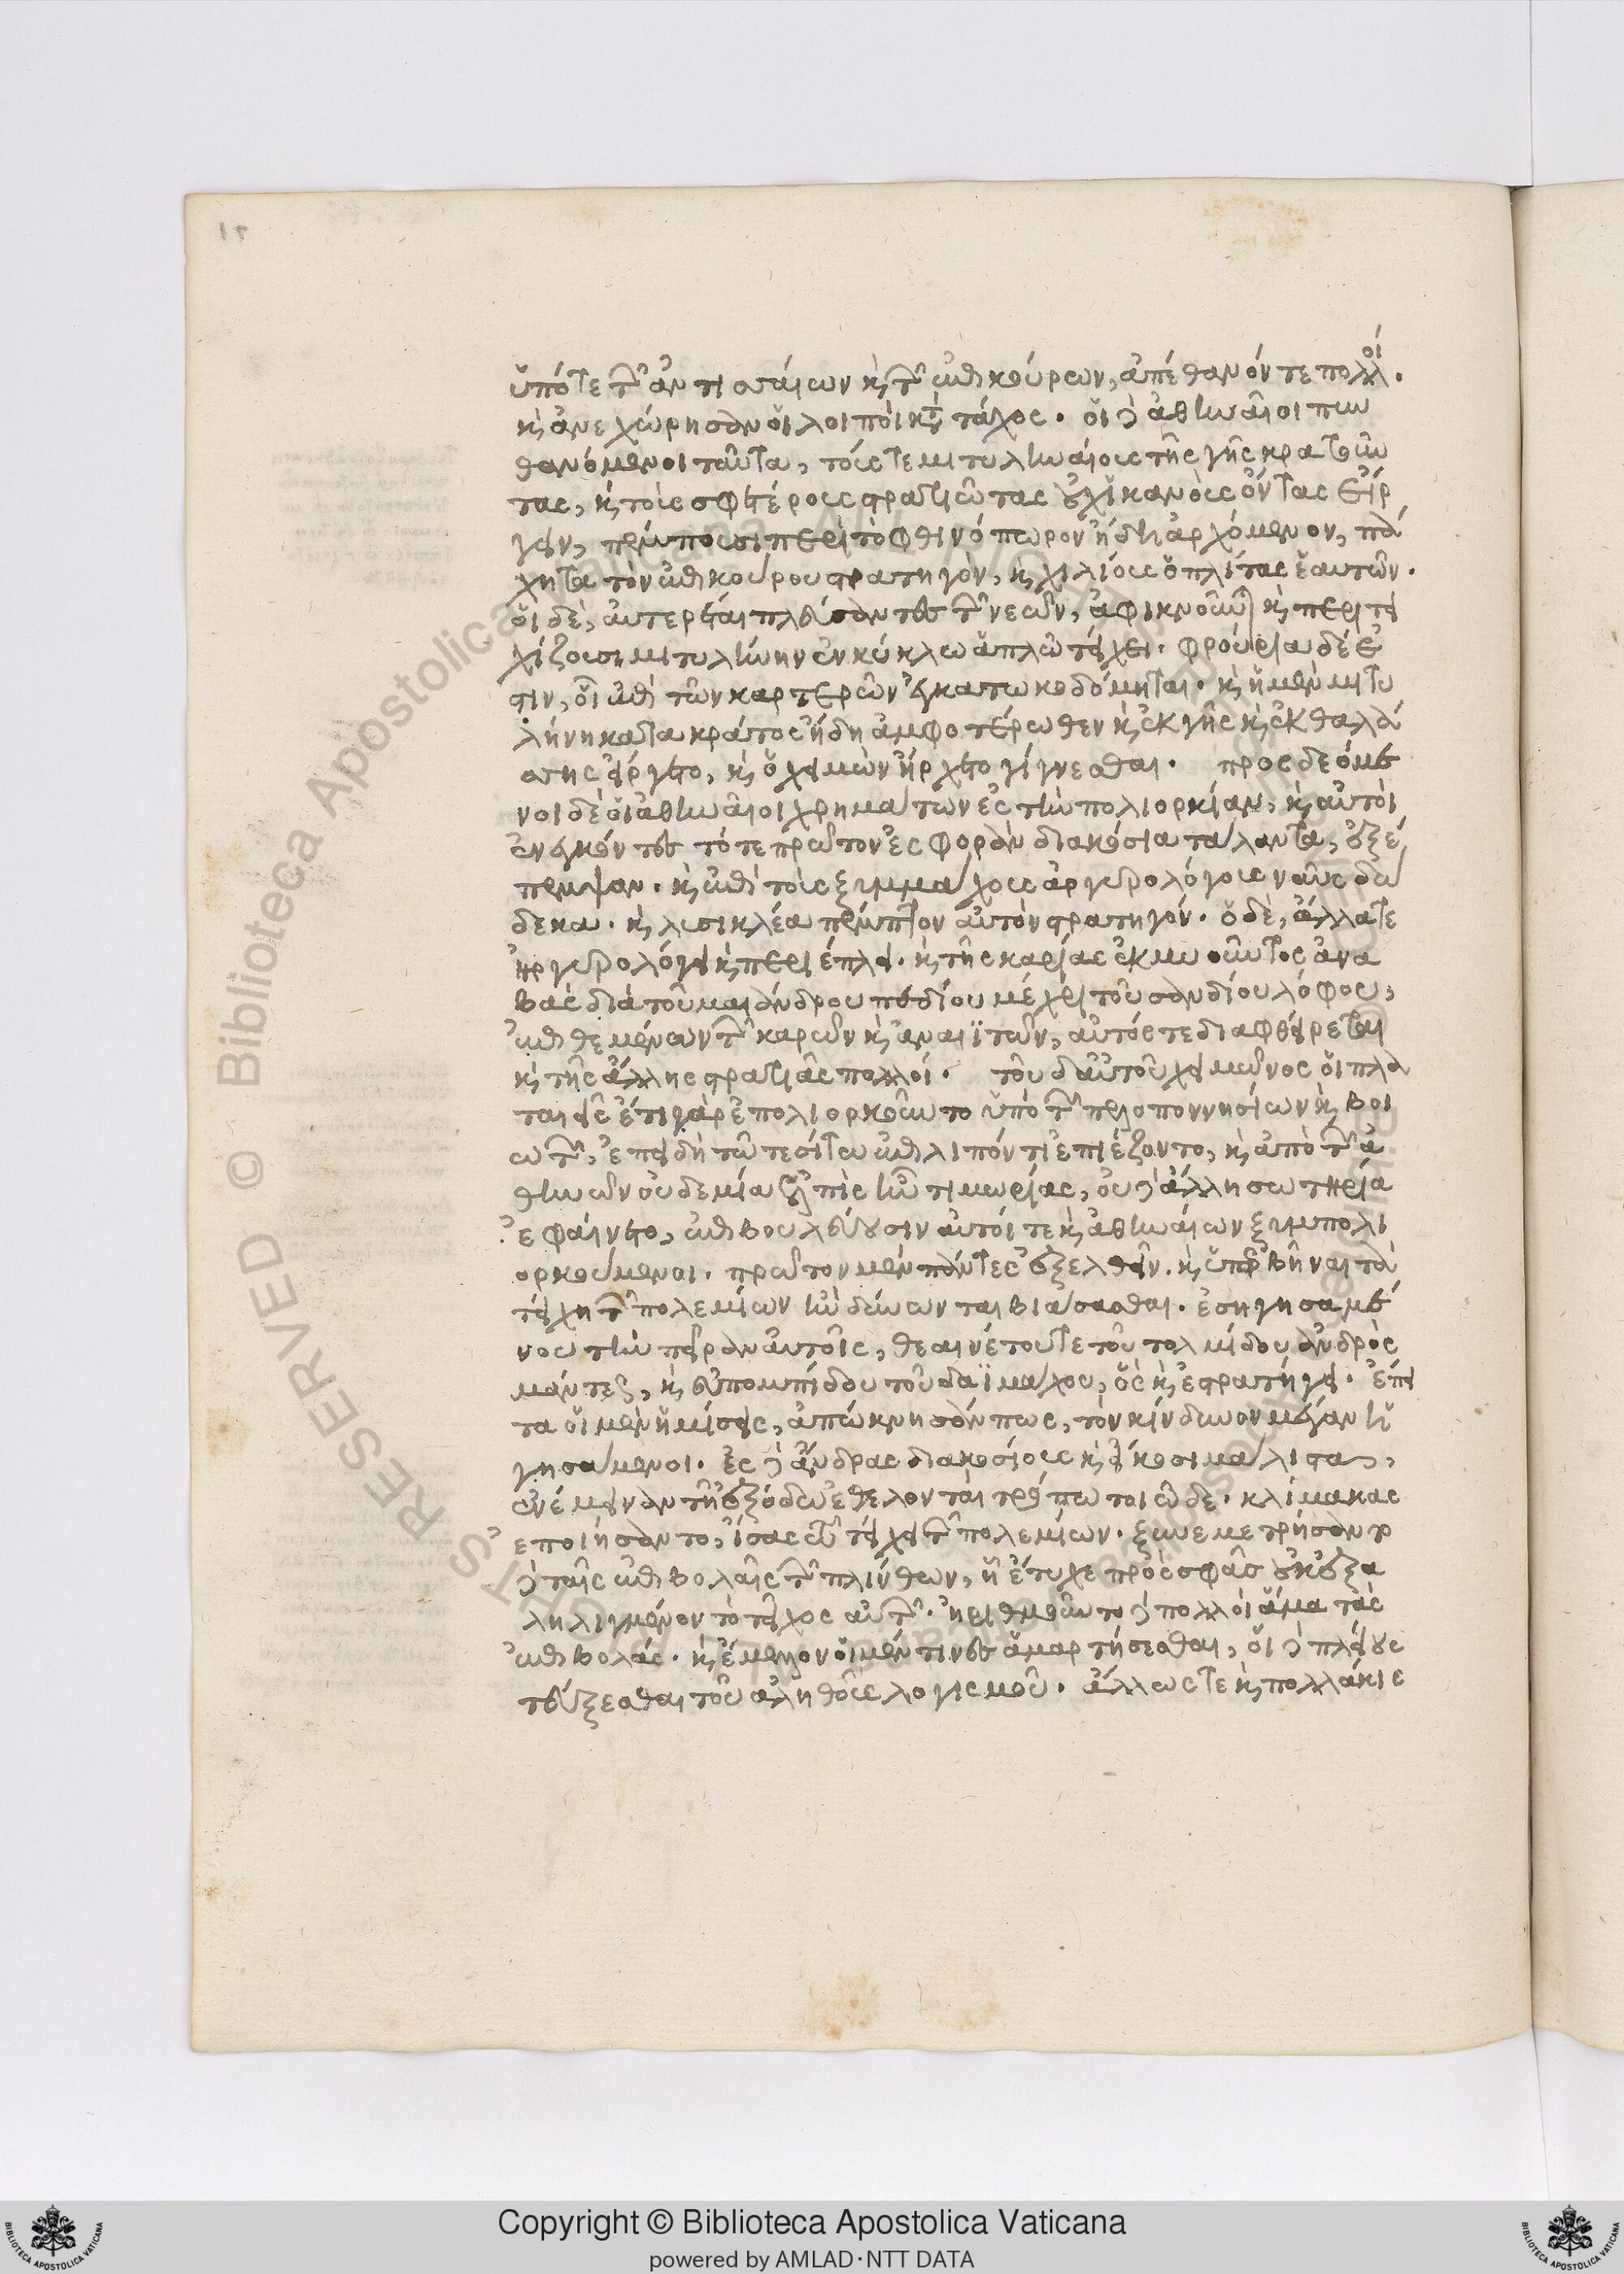 ὑπό τε τῶν ἀντισσαίων κỳ τῶν ἐπικούρων, ἀπέθανόν τε πολλοί.
κỳ ἀνεχώρησαν ὁι λοιποὶ κατὰ τάχος. ὁι δὲ ἀθηναῖοι πυν
θανόμενοι ταῦτα, τούς τε μιτυληναίους τῆς γῆς κρατοῦν
τας, κỳ τοὺς σφετέρους στρατιώτας οὐχ ἱκανοὺς ὄντας εἴρ
γειν, πέμπουσι περὶ τὸ φθινόπωρον ἤδη ἀρχόμενον, πά
χητα τὸν ἐπικούρου στρατηγὸν, κỳ χιλίους ὁπλίτας ἑαυτῶν.
ὁι δὲ, ἀυτερέται πλεύσαντες τῶν νεῶν, ἀφικνοῦνται κỳ περιτει
χίζουσι μιτυλήνην ἐν κύκλω ἁπλῶ τείχει. φρούρια δὲ ἔ
στιν, ὅι ἐπὶ τῶν καρτερῶν ἐγκατωκοδόμηται. κỳ ἡ μὲν μιτυ
λήνη κατα κράτος ἤδη ἀμφοτέρωθεν κỳ ἐκ γῆς κỳ ἐκ θαλάσ
σης εἴργετο, κỳ ὁ χειμὼν ἤρχετο γίγνεσθαι. προσδεόμε
νοι δὲ ὁι ἀθηναῖοι χρημάτων ἐς τὴν πολιορκίαν, κỳ αὐτοὶ
ἐνεγκόντες τότε πρῶτον ἐς φορὰν διακόσια τάλαντα, ἐξέ
πεμψαν. κỳ ἐπὶ τοὺς ξυμμάχους ἀργυρολόγους ναῦς δώ
δεκα. κỳ λυσικλέα πέμπτον αὐτὸν στρατηγόν. ὁ δὲ, ἄλλα τε
ἠργυρολόγει κỳ περιέπλει. κỳ τῆς καρίας ἐκ μυοῦντος ἀνα
βὰς διὰ τοῦ μαιάνδρου πεδίου μέχρι τοῦ σανδίου λόφου,
ἐπιθεμένων τῶν καρῶν κỳ ἀναιϊτῶν, αὐτός τε διαφθείρεται
κỳ τῆς ἄλλης στρατιᾶς πολλοί. τοῦ δ' αὐτοῦ χειμῶνος ὁι πλα
ταιεῖς ἔτι γὰρ ἐπολιορκοῦντο ὑπὸ τῶν πελοποννησίων κỳ βοι
ωτῶν, ἐπειδὴ τῶ τε σίτω ἐπιλιπόντι ἐπιέζοντο, κỳ ἀπὸ τῶν ἀ
θηνῶν οὐδεμία ἐλπὶς ἦν τιμωρίας, ουδὲ ἄλλη σωτηρία
ἐφαίνετο, ἐπιβουλεύουσιν αὐτοί τε κỳ ἀθηναίων ξυμπολι
ορκούμενοι. πρῶτον μὲν πάντες ἐξελθεῖν. κỳ ὑπερβῆναι τὰ
τείχη τῶν πολεμίων ἢν δύνωνται βιάσασθαι. ἐσηγησαμέ
νου τὴν πεῖραν ἀυτοῖς, θεαινέτου τε τοῦ τολμίδου ἀνδρὸς
μάντεως, κỳ εὐπομπίδου τοῦ δαϊμάχου, ὃς κỳ ἐστρατήγει. ἔπει
τα ὁι μὲν ἡμίσεις, ἀπώκνησάν πως, τὸν κίνδυνον μέγαν ἡ
γησάμενοι. ἐς δὲ ἄνδρας διακοσίους κỳ εἴκοσι μάλιστα,
ἐνέμειναν τῆ ἐξόδω ἐθελονταὶ τρόπω τοιῶδε. κλίμακας
ἐποιήσαντο, ἴσας τῶ τείχει τῶν πολεμίων. ξυνεμετρήσαντο
δὲ ταῖς ἐπιβολαῖς τῶν πλίνθων, ἧ ἔτυχε πρὸς σφᾶς οὐκ ἐξα
ληλιμμένον τὸ τεῖχος αὐτῶν. ἠριθμοῦντο δὲ πολλοὶ ἅμα τὰς
ἐπιβολάς. κỳ ἔμελλον ὁι μέν τινες ἁμαρτήσεσθαι, ὁι δὲ πλείους
τεύξεσθαι τοῦ ἀληθοῦς λογισμοῦ. ἄλλως τε κỳ πολλάκις
Copyright © Biblioteca Apostolica Vaticana
powered by AMLAD·NTT DATA